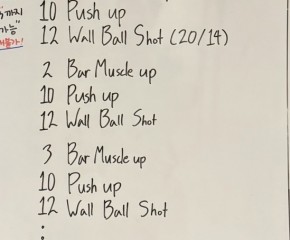 까지
10 Push up
가능"
12 Wall Ball Shot (20/14)
2 Bar Muscle up
10 Push up
12 Wall Ball Shot
3 Bar Muscle up
10 Push up
12 Wall Ball Shot
: